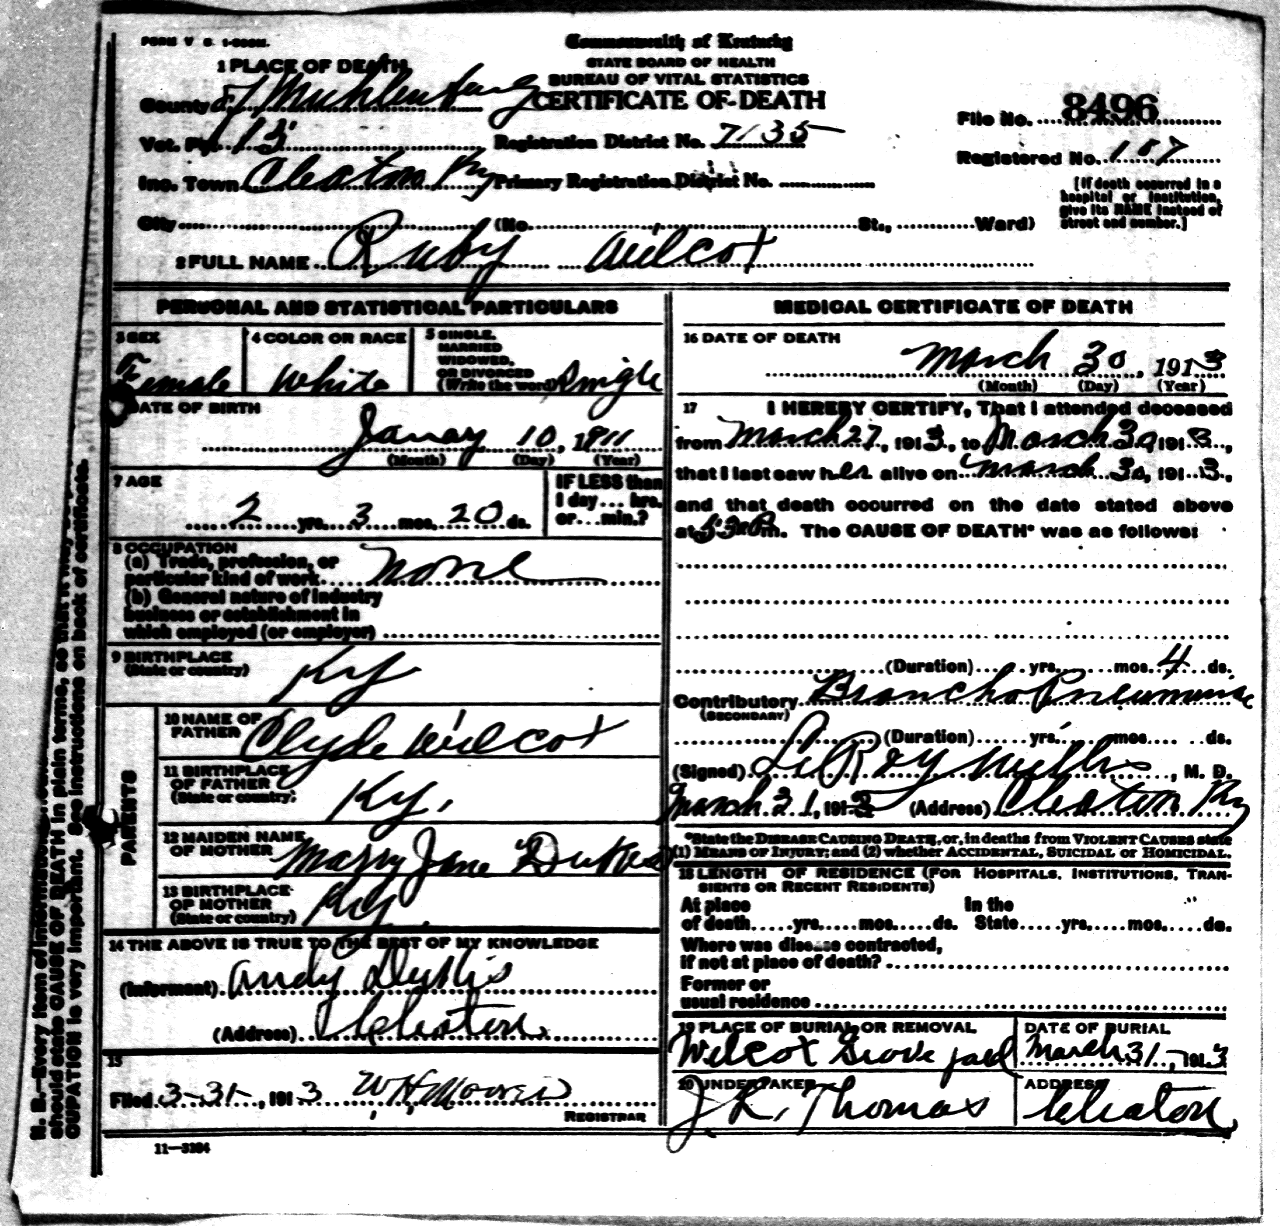 FORM V. S. 1-
Commonwealth of Kentucky
STATE BOARD OF HEALTH
BUREAU OF VITAL STATISTICS
CERTIFICATE OF DEATH
1 PLACE OF DEATH
County of Muhlenberg
Vot. Pct. 13
Inc. Town Cleaton Ky
Registration District No. 7135
Primary Registration District No.
File No. 8496
Registered No. 107
[If death occurred in a hospital or institution, give its NAME instead of street and number.]
City (No. St., Ward)
2 FULL NAME Ruby Wilcox
PERSONAL AND STATISTICAL PARTICULARS
3 SEX
Female
4 COLOR OR RACE
White
5 SINGLE,
MARRIED
WIDOWED,
OR DIVORCED
(Write the word) Single
DATE OF BIRTH
Januay 10, 1911
(Month) (Day) (Year)
7 AGE
2 yrs. 3 mos. 20 ds.
IF LESS than
1 day ... hrs.
or ... min.?
8 OCCUPATION
(a) Trade, profession, or
particular kind of work None
(b) General nature of industry
business or establishment in
which employed (or employer)
9 BIRTHPLACE
(State or country) Ky
PARENTS
10 NAME OF
FATHER Clyde Wilcox
11 BIRTHPLACE
OF FATHER
(State or country) Ky.
12 MAIDEN NAME
OF MOTHER Marry Jane Dukes
13 BIRTHPLACE
OF MOTHER
(State or country) Ky.
14 THE ABOVE IS TRUE TO THE BEST OF MY KNOWLEDGE
(Informant) Andy
(Address) Cleaton
15
Filed 3-31-, 1913 W H Moore
REGISTRAR
11-3284
MEDICAL CERTIFICATE OF DEATH
16 DATE OF DEATH
March 30, 1913
(Month) (Day) (Year)
17 I HEREBY CERTIFY, That I attended deceased
from March 27, 1913, to March 30 1913,
that I last saw her alive on March 30, 1913,
and that death occurred on the date stated above
at 530 Pm. The CAUSE OF DEATH* was as follows:
(Duration) yrs. mos. 4 ds.
Contributory Broncho Pneumonia
(SECONDARY)
(Duration) yrs. mos. ds.
(Signed) LeRoy Willis, M. D.
March 21, 1913 (Address) Cleaton Ky
*State the DISEASE CAUSING DEATH, or, in deaths from VIOLENT CAUSES state
(1) MEANS OF INJURY; and (2) whether ACCIDENTAL, SUICIDAL or HOMICIDAL.
18 LENGTH OF RESIDENCE (FOR HOSPITALS, INSTITUTIONS, TRAN-
SIENTS OR RECENT RESIDENTS)
At place In the
of death yrs. mos. ds. State yrs. mos. ds.
Where was disease contracted,
if not at place of death?
Former or
usual residence
19 PLACE OF BURIAL OR REMOVAL
Wilcox Grove yard
DATE OF BURIAL
March 31-, 1913
20 UNDERTAKER
J. K. Thomas
ADDRESS
Cleaton
N. B.—Every item of
should state CAUSE OF DEATH in plain terms, so that it may be
CUPATION is very important. See instructions on back of certificate.